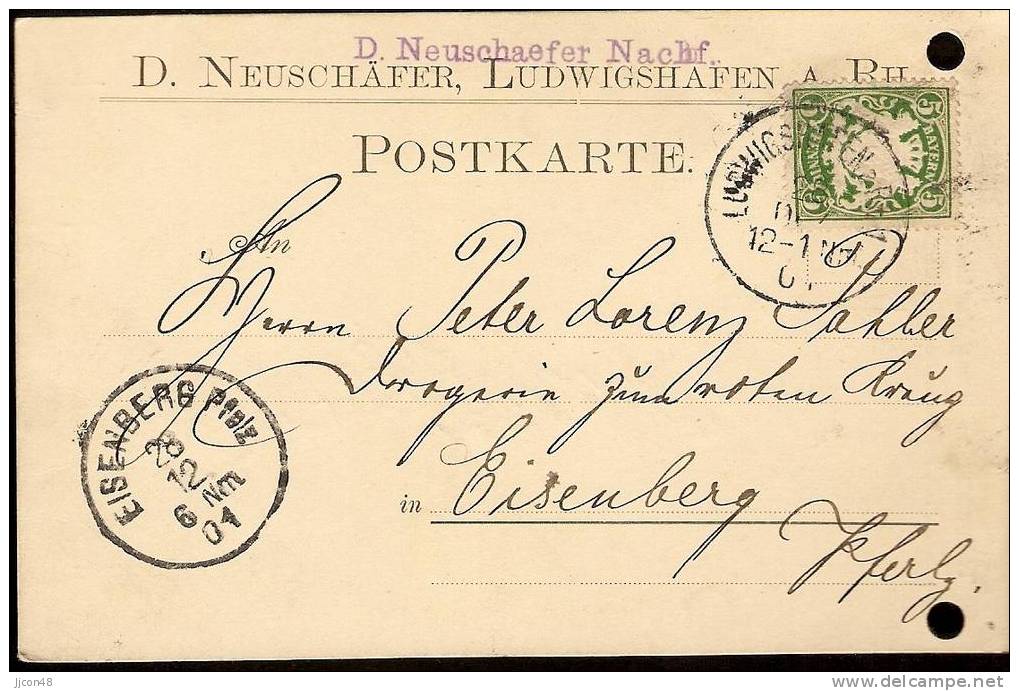 D. Neuschaefer Nachf.
D. NEUSCHÄFER, LUDWIGSHAFEN A. RH.
POSTKARTE.
5 BAYERN 5
LUDWIGSHAFEN
12-1 NM
01
An
Herrn Peter Lorenz Sahler
Drogerie zum roten Krug
in Eisenberg
Pfalz.
EISENBERG Pfalz
28
12
6 Nm
01
jjcon48
www.delcampe.net